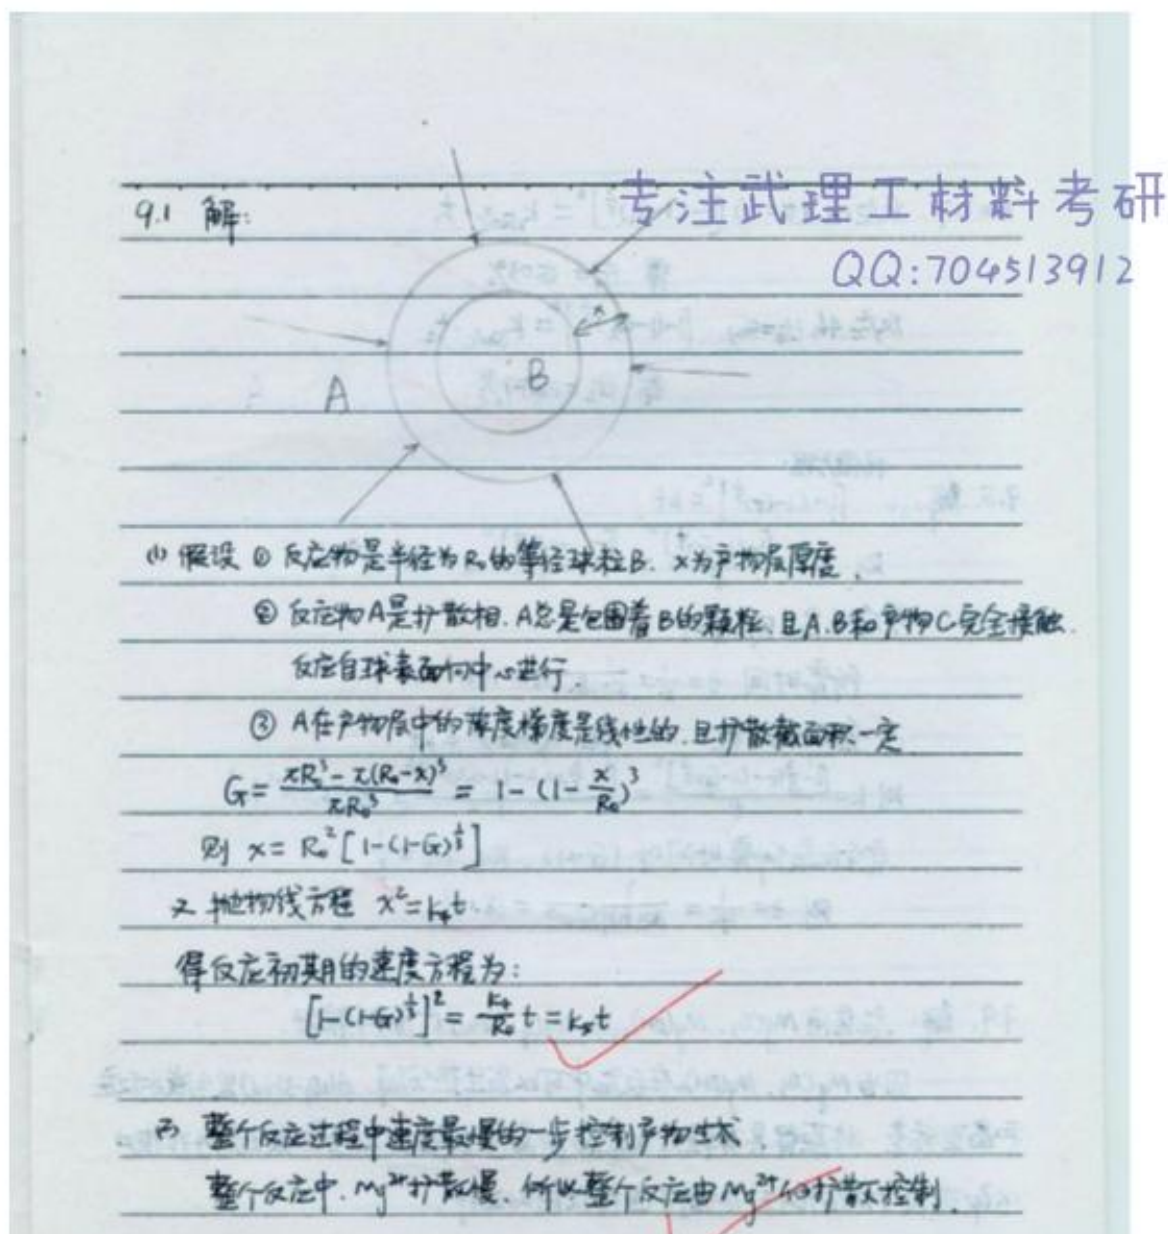 专注武理工材料考研
QQ:704513912
9.1 解:
x
B
A
(1) 假设 ① 反应物是半径为R₀的等径球粒B. x为产物层厚度.
② 反应物A是扩散相. A总是包围着B的颗粒, 且A.B和产物C完全接触.
反应自球表面向中心进行
③ A在产物层中的浓度梯度是线性的. 且扩散截面积一定
G = (πR₀³ - π(R₀-x)³)/(πR₀³) = 1-(1-x/R₀)³
则 x = R₀²[1-(1-G)^(1/3)]
又 抛物线方程 x²=k₄t
得反应初期的速度方程为:
[1-(1-G)^(1/3)]² = (k₄/R₀)t = k₅t
整个反应过程中速度最慢的一步控制产物生成
整个反应中. Mg²⁺扩散慢. 所以整个反应由Mg²⁺的扩散控制.